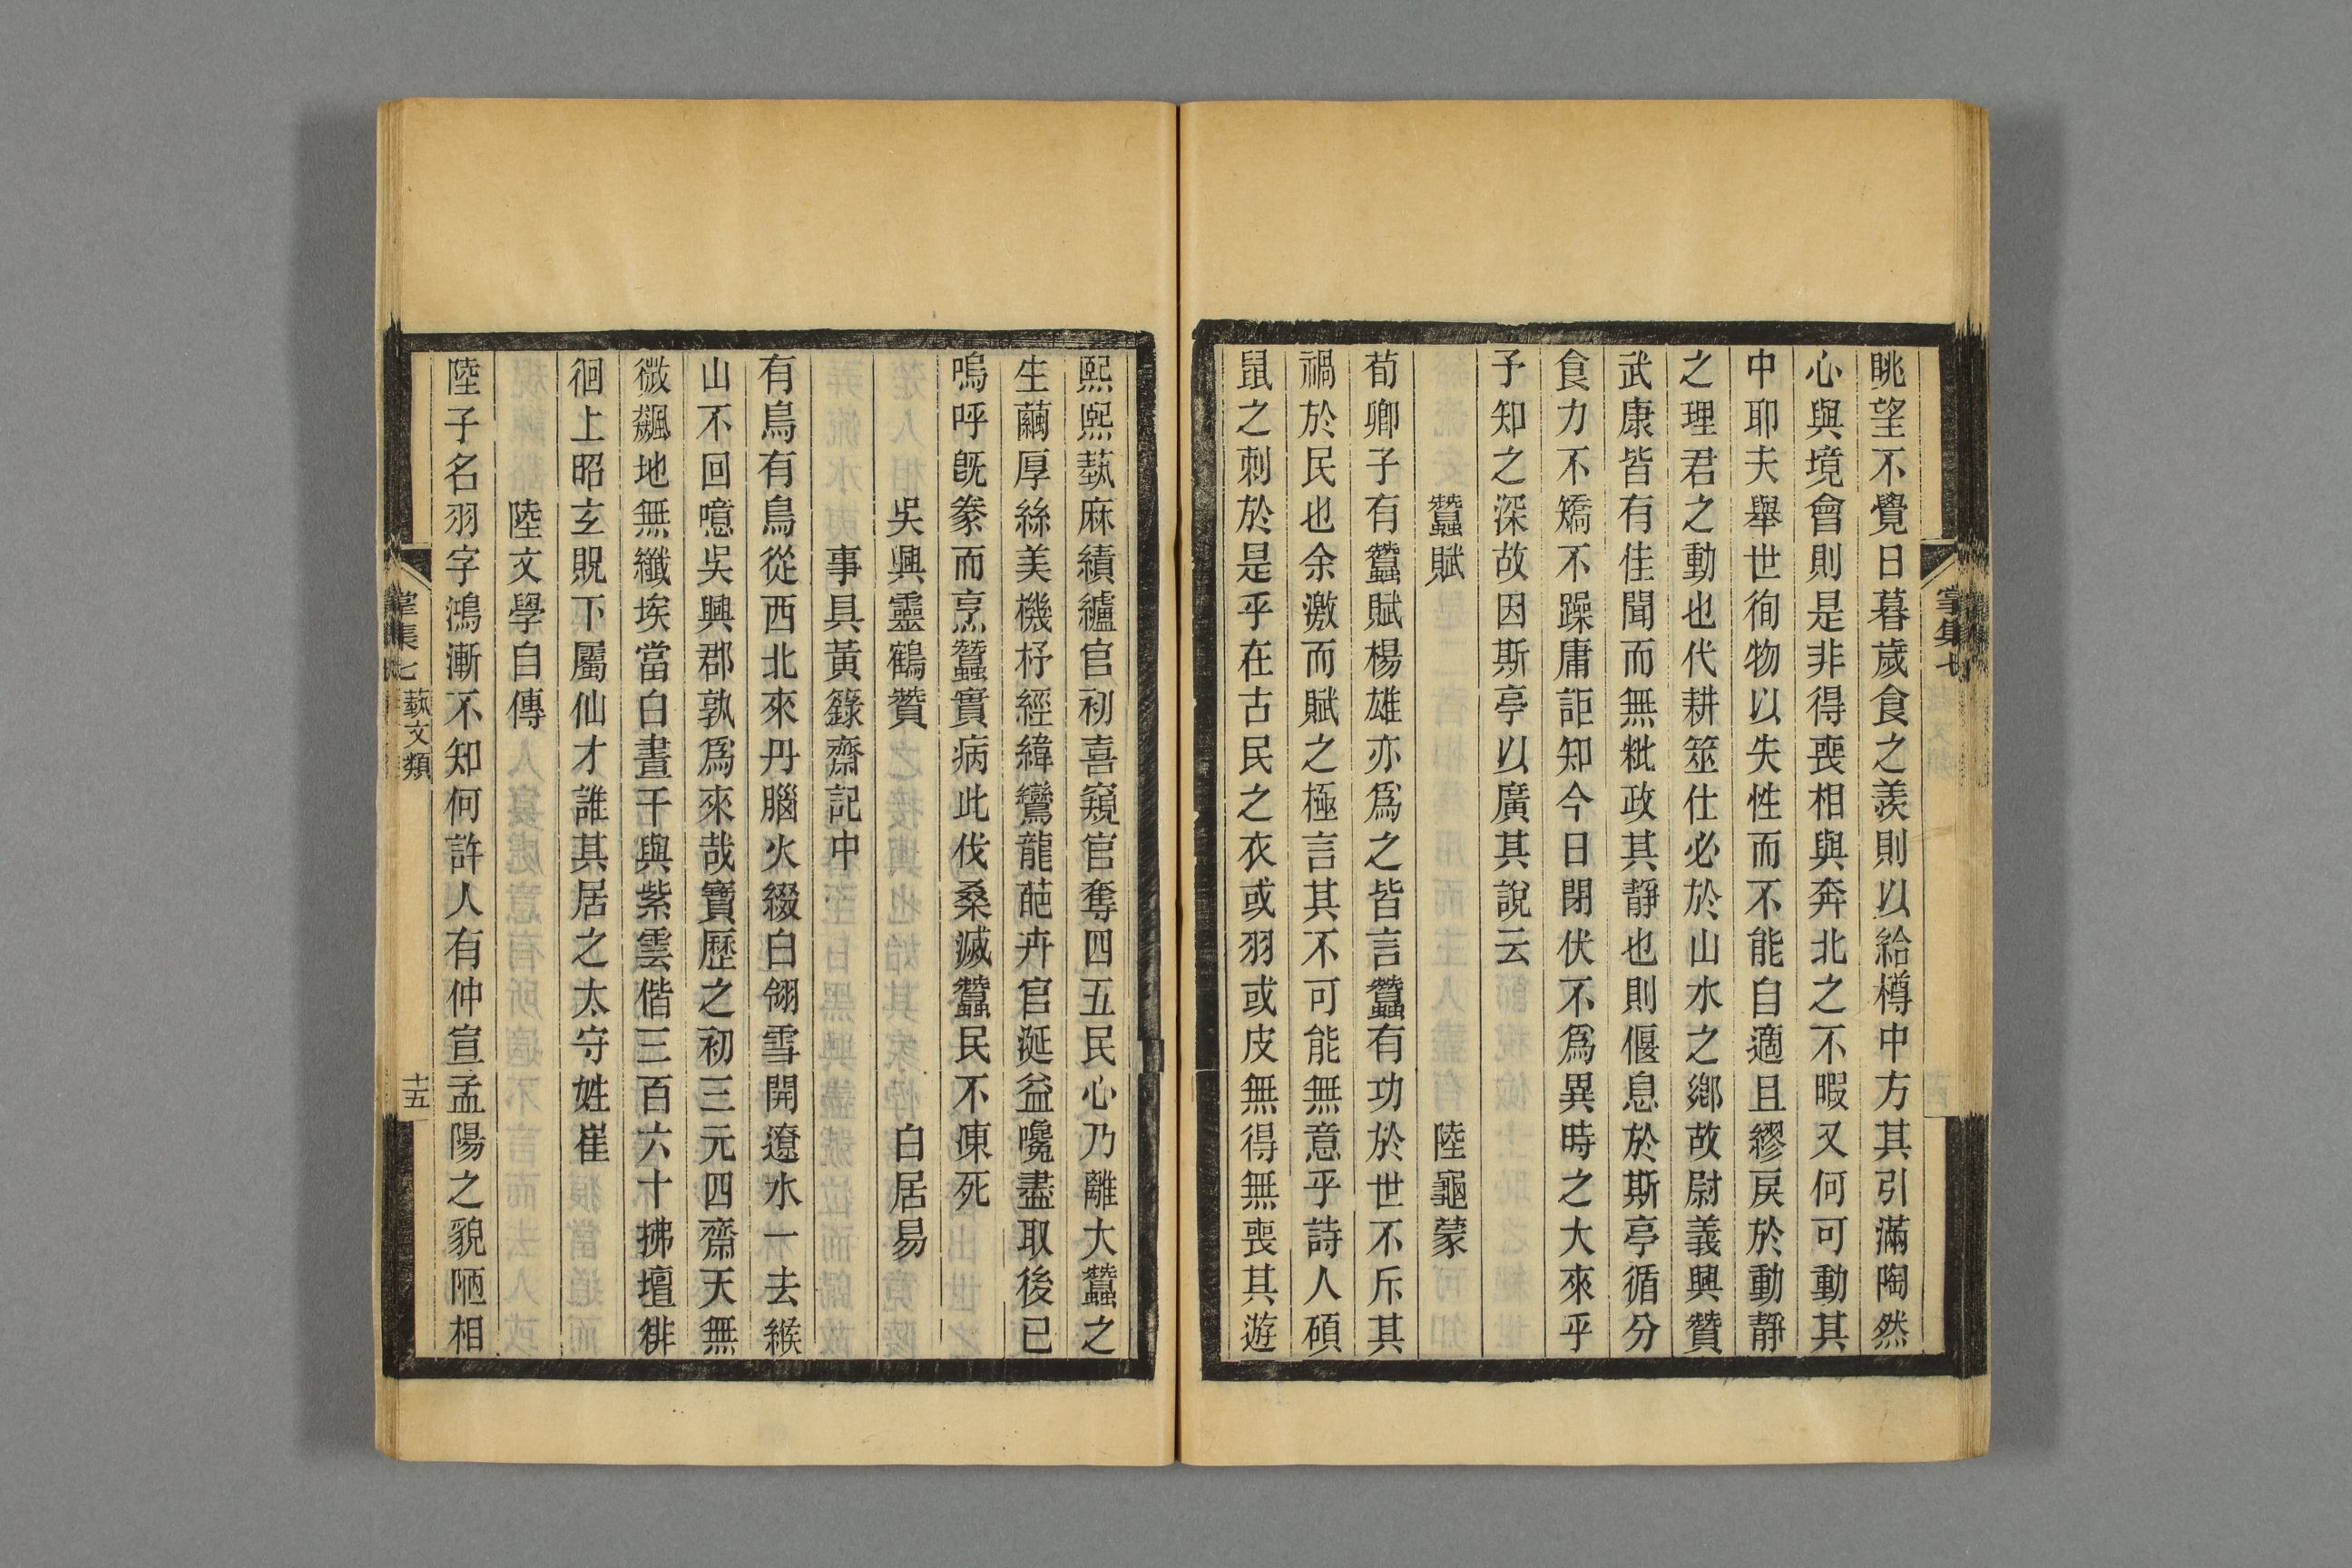 眺望不覺日暮歲食之羨則以給樽中方其引滿陶然
心與境會則是非得喪相與奔北之不暇又何可動其
中耶夫舉世徇物以失性而不能自適且繆戾於動靜
之理君之動也代耕筮仕必於山水之鄉故尉義興贊
武康皆有佳聞而無粃政其靜也則偃息於斯亭循分
食力不矯不躁庸詎知今日閉伏不爲異時之大來乎
予知之深故因斯亭以廣其說云
蠶賦 陸龜蒙
荀卿子有蠶賦楊雄亦爲之皆言蠶有功於世不斥其
禍於民也余激而賦之極言其不可能無意乎詩人碩
鼠之刺於是乎在古民之衣或羽或皮無得無喪其遊
熙熙蓺麻績纑官初喜窺官奪四五民心乃離大蠶之
生繭厚絲美機杼經緯鸞龍葩卉官涎益嚵盡取後已
嗚呼旣豢而烹蠶實病此伐桑滅蠶民不凍死
吳興靈鶴贊 白居易
事具黃籙齋記中
有鳥有鳥從西北來丹腦火綴白翎雪開遼水一去緱
山不回噫吳興郡孰爲來哉寶歷之初三元四齋天無
微飆地無纖埃當白晝干與紫雲偕三百六十拂壇徘
徊上昭玄貺下屬仙才誰其居之太守姓崔
陸文學自傳
陸子名羽字鴻漸不知何許人有仲宣孟陽之貌陋相
掌集七
掌集七 蓺文類 十五